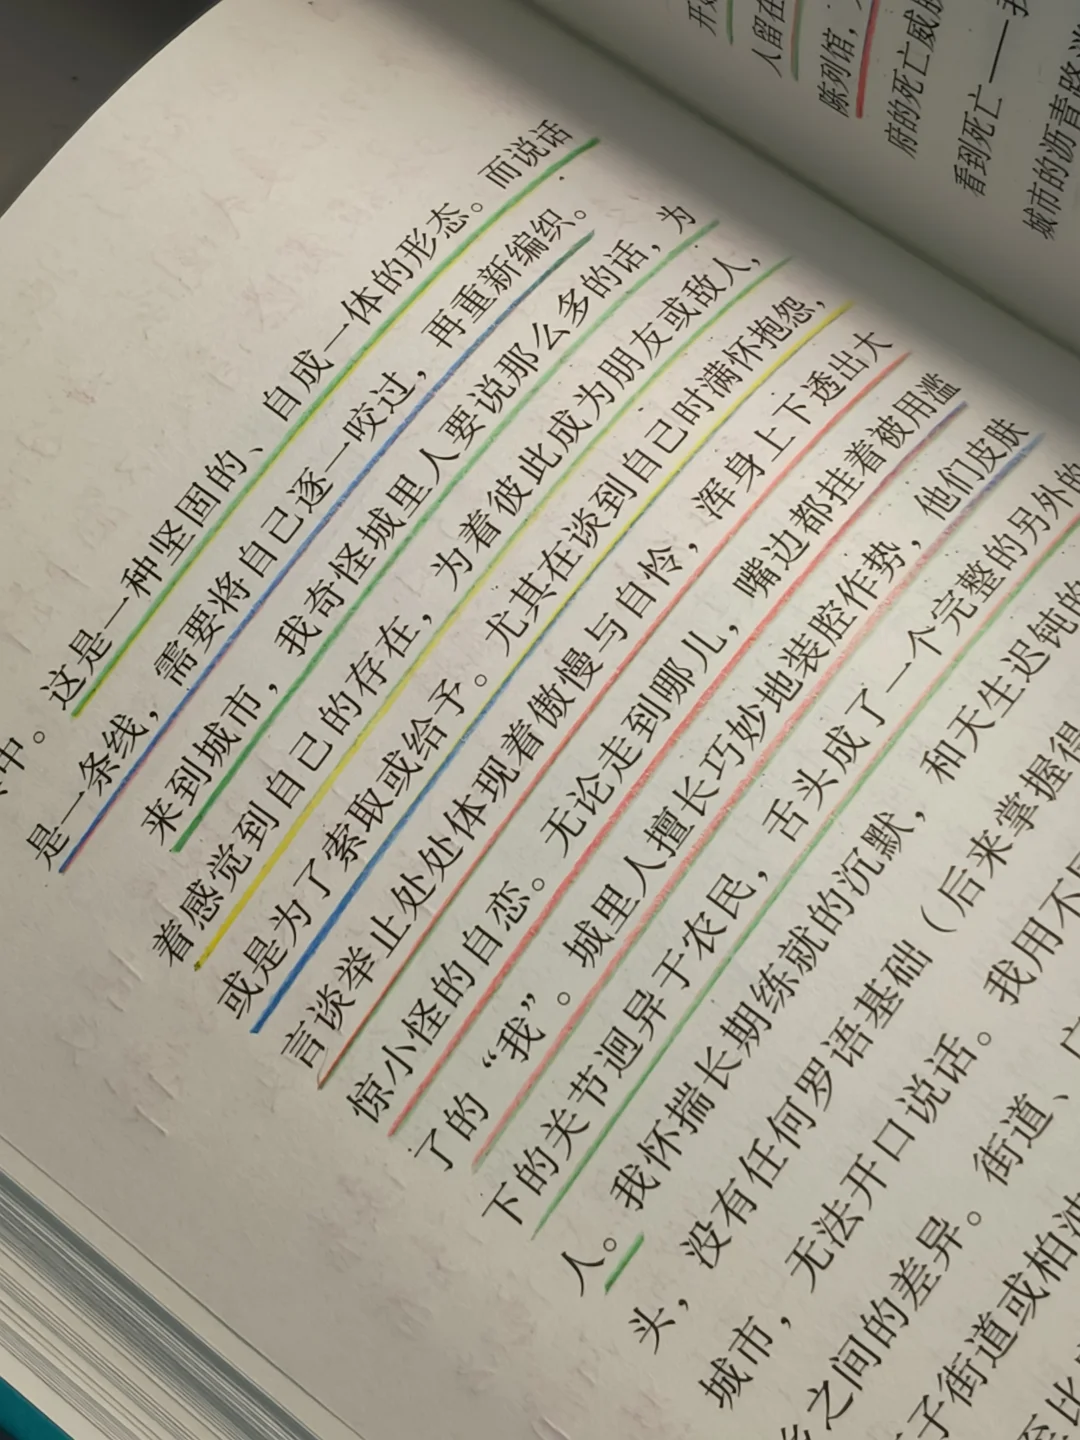 开始
人留在
陈列馆，
府的死亡威胁
看到死亡——我
城市的沥青路
中。这是一种坚固的、自成一体的形态。而说话
是一条线，需要将自己逐一咬过，再重新编织。
来到城市，我奇怪城里人要说那么多的话，为
着感觉到自己的存在，为着彼此成为朋友或敌人，
或是为了索取或给予。尤其在谈到自己时满怀抱怨，
言谈举止处处体现着傲慢与自怜，浑身上下透出大
惊小怪的自恋。无论走到哪儿，嘴边都挂着被用滥
了的“我”。城里人擅长巧妙地装腔作势，他们皮肤
下的关节迥异于农民，舌头成了一个完整的另外的
人。我怀揣长期练就的沉默，和天生迟钝的
头，没有任何罗语基础（后来掌握得
城市，无法开口说话。我用不
之间的差异。街道、广
子街道或柏油
至比